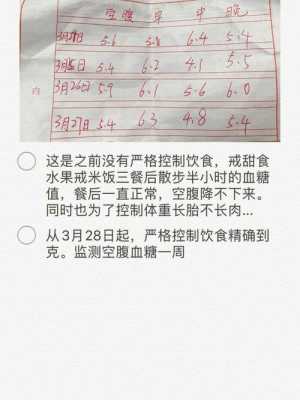 空腹 早 中 晚
5.6 5.8 6.4 5.4
5.4 6.2 4.1 5.5
3月26日 5.9 6.1 5.6 6.0
3月27日 5.4 6.3 4.8 5.4
这是之前没有严格控制饮食，戒甜食
水果戒米饭三餐后散步半小时的血糖
值，餐后一直正常，空腹降不下来。
同时也为了控制体重长胎不长肉...
从3月28日起，严格控制饮食精确到
克。监测空腹血糖一周